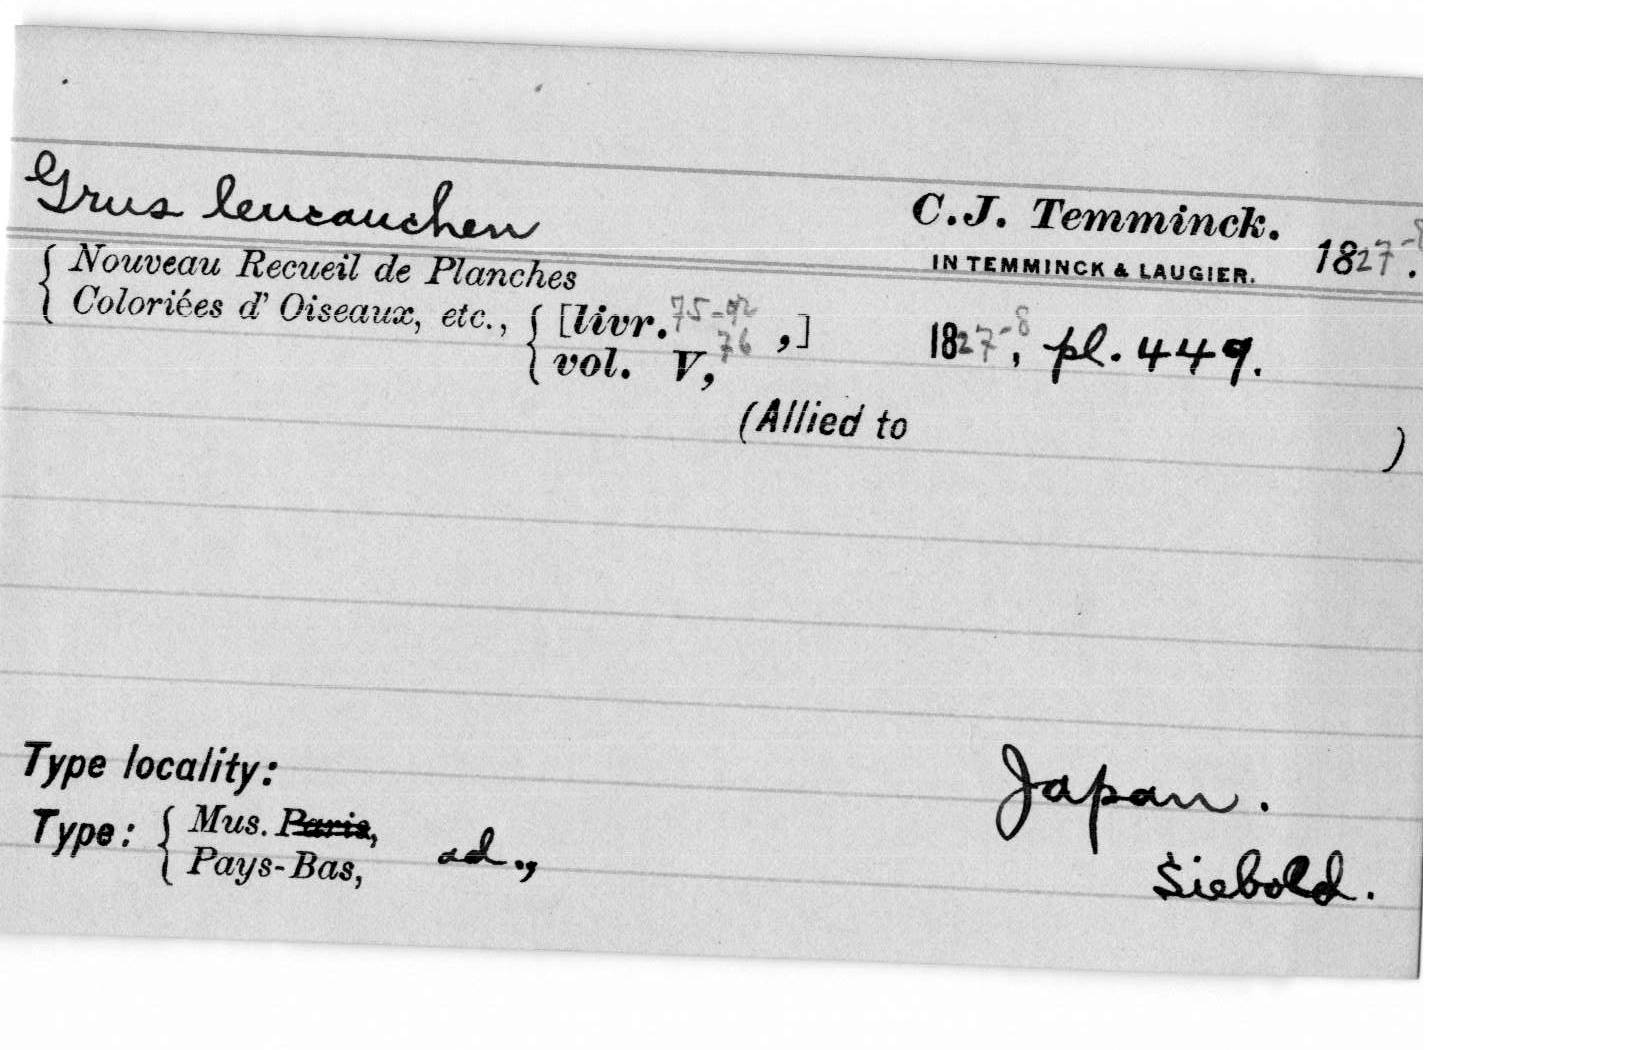 Grus leucauchen C.J. Temminck.
IN TEMMINCK & LAUGIER. 1827-8.
{ Nouveau Recueil de Planches
Coloriées d' Oiseaux, etc., { [livr. 75-76 ,] 1827-8, pl. 449.
vol. V,
(Allied to )
Type locality: Japan.
Type: { Mus. Paris, ad.,
Pays-Bas, Siebold.